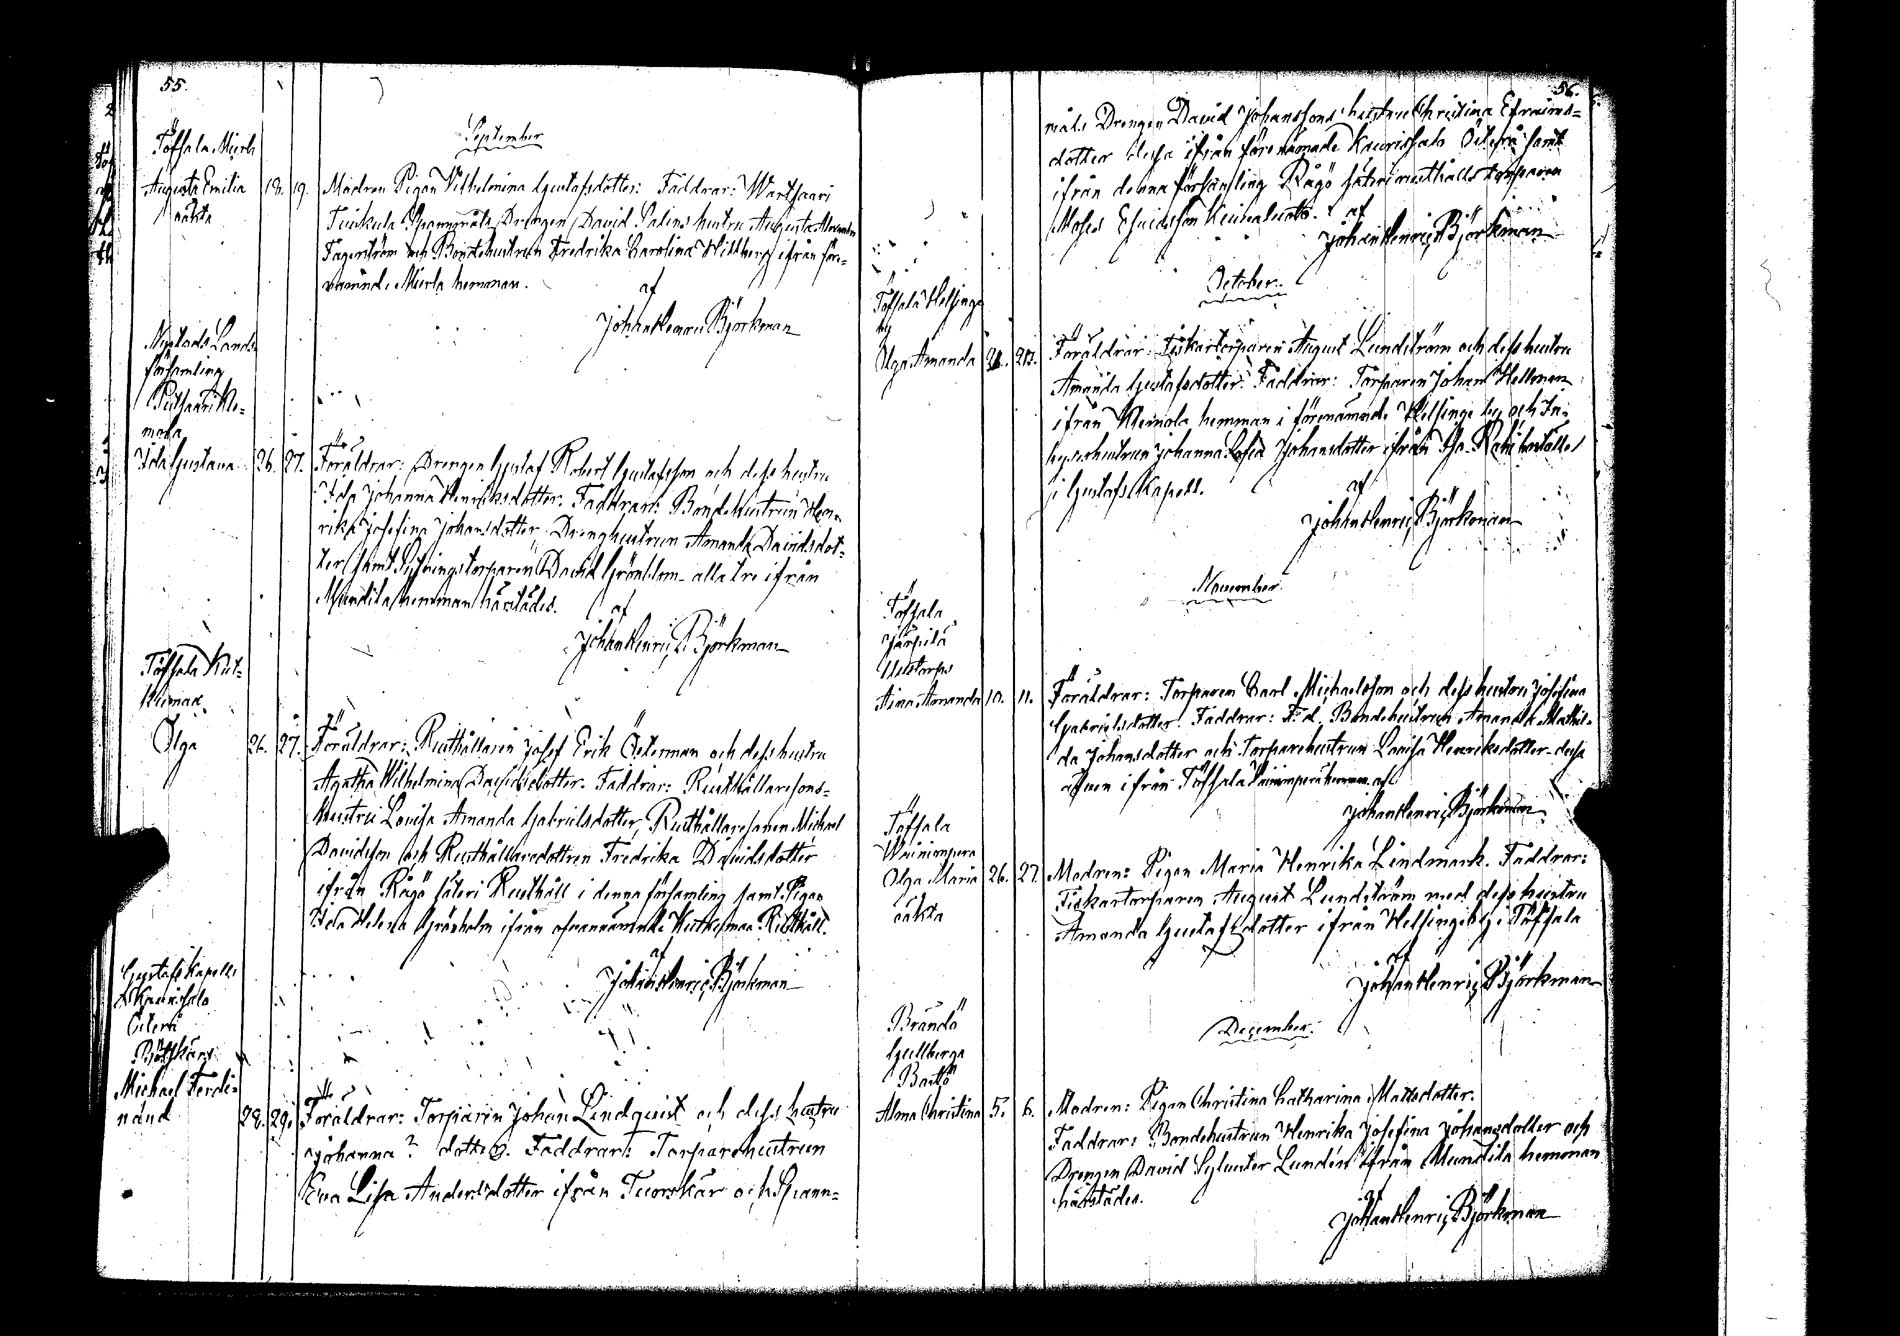 55.
September
Töfsala Mierla
Augusta Emilia 18. 19. Modren Pigan Vilhelmina Gustafsdotter: Faddrar: Wartsaari
oäkta
Drengen David Palins hustru Augusta
Fagerström och Bondehustrun Fredrika Carolina Widberg ifrån före-
nämnde Mierla hemman. af
Johan Henric Björkman
Nystads Lands-
församling
mola
Ida Gustava 26. 27. Föräldrar: Drengen Gustaf Robert Gustafsson och dess hustru
Ida Johanna Henriksdotter. Faddrar: Bondehustrun Hen-
rika Josefina Johansdotter, Drenghustrun Amanda Davidsdot-
ter samt Sytningstorparen David Grönblom alla tre ifrån
Mundila hemman härstädes. af
Johan Henric Björkman
Töfsala Kut-
kumaa
Olga 26. 27. Föräldrar: Rusthållaren Josef Erik Österman och dess hustru
Agatha Wilhelmina Davidsdotter. Faddrar: Rusthållaresons-
hustru Lovisa Amanda Gabrielsdotter, Rusthållaresonen Michael
Davidsson och Rusthållaredottren Fredrika Davidsdotter
ifrån Rågö säteri Rusthåll i denna församling samt Pigan
Ida Helena Granholm ifrån ofvannämnde Kutkumaa Rusthåll.
af
Johan Henric Björkman
Gustafs Kapell
Kaurissalo
Österå
Michael Ferdi-
nand 28. 29. Föräldrar: Torparen Johan Lindquist och dess hustru
Johanna ? dotter. Faddrar: Torparehustrun
Eva Lisa Andersdotter ifrån Tuorskär och Spann-
56.
måls Drengen David Johanssons hustru Christina Efraims-
dotter dessa ifrån förenämnde Kaurissalo Österå samt
ifrån denna församling Rågö säteri rusthålls torparen
Moses
af
Johan Henric Björkman
October.
Töfsala Helsinge
by
Olga Amanda 20. Föräldrar: Fiskartorparen August Lundström och dess hustru
Amanda Gustafsdotter. Faddrar: Torparen Johan Hellman
ifrån Heinola hemman i förenämnde Helsinge by och In-
hyseshustrun Johanna Sofia Johansdotter ifrån
i Gustafs Kapell. af
Johan Henric Björkman
November.
Töfsala
Järpilä
Aina Amanda 10. 11. Föräldrar: Torparen Carl Michaelsson och dess hustru Josefina
Gabrielsdotter. Faddrar: F.d. Bondehustrun Amanda Mathil-
da Johansdotter och Torparehustrun Lovisa Henriksdotter dessa
äfven ifrån Töfsala Wäinimperä hemman. af
Johan Henric Björkman
Töfsala
Wäinimperä
Olga Maria 26. 27. Modren: Pigan Maria Henrika Lindmark. Faddrar:
oäkta
Fiskartorparen August Lundström med dess hustru
Amanda Gustafsdotter ifrån Helsinge by i Töfsala
af
Johan Henric Björkman
December.
Brändö
Gullberga
Bartö
Alma Christina 5. 6. Modren: Pigan Christina Catharina Mattsdotter.
Faddrar: Bondehustrun Henrika Josefina Johansdotter och
Drengen David Sylvester Lundén ifrån Mundila hemman
härstädes. af
Johan Henric Björkman